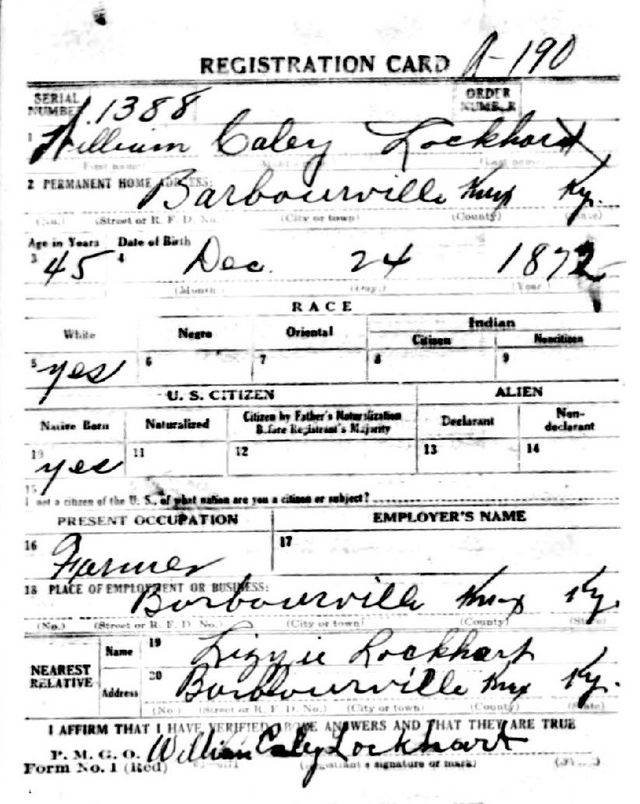 REGISTRATION CARD A-190
SERIAL NUMBER 1388 ORDER NUMBER
1 William Caley Lockhart
(First name) (Last name)
2 PERMANENT HOME ADDRESS: Barbourville Knox Ky.
(No.) (Street or R. F. D. No.) (City or town) (County) (State)
Age in Years Date of Birth
3 45 4 Dec. 24 1872
(Month) (Day) (Year)
RACE
White Negro Oriental Indian
Citizen Noncitizen
5 yes 6 7 8 9
U. S. CITIZEN ALIEN
Native Born Naturalized Citizen by Father's Naturalization Before Registrant's Majority Declarant Non-declarant
10 yes 11 12 13 14
15
If not a citizen of the U. S., of what nation are you a citizen or subject?
PRESENT OCCUPATION EMPLOYER'S NAME
16 Farmer 17
18 PLACE OF EMPLOYMENT OR BUSINESS:
Barbourville Knox Ky.
(No.) (Street or R. F. D. No.) (City or town) (County) (State)
NEAREST RELATIVE Name 19 Lizzie Lockhart
Address 20 Barbourville Knox Ky.
(No.) (Street or R. F. D. No.) (City or town) (County) (State)
I AFFIRM THAT I HAVE VERIFIED ABOVE ANSWERS AND THAT THEY ARE TRUE
P. M. G. O. William Caley Lockhart
Form No. 1 (Red) (Registrant's signature or mark)